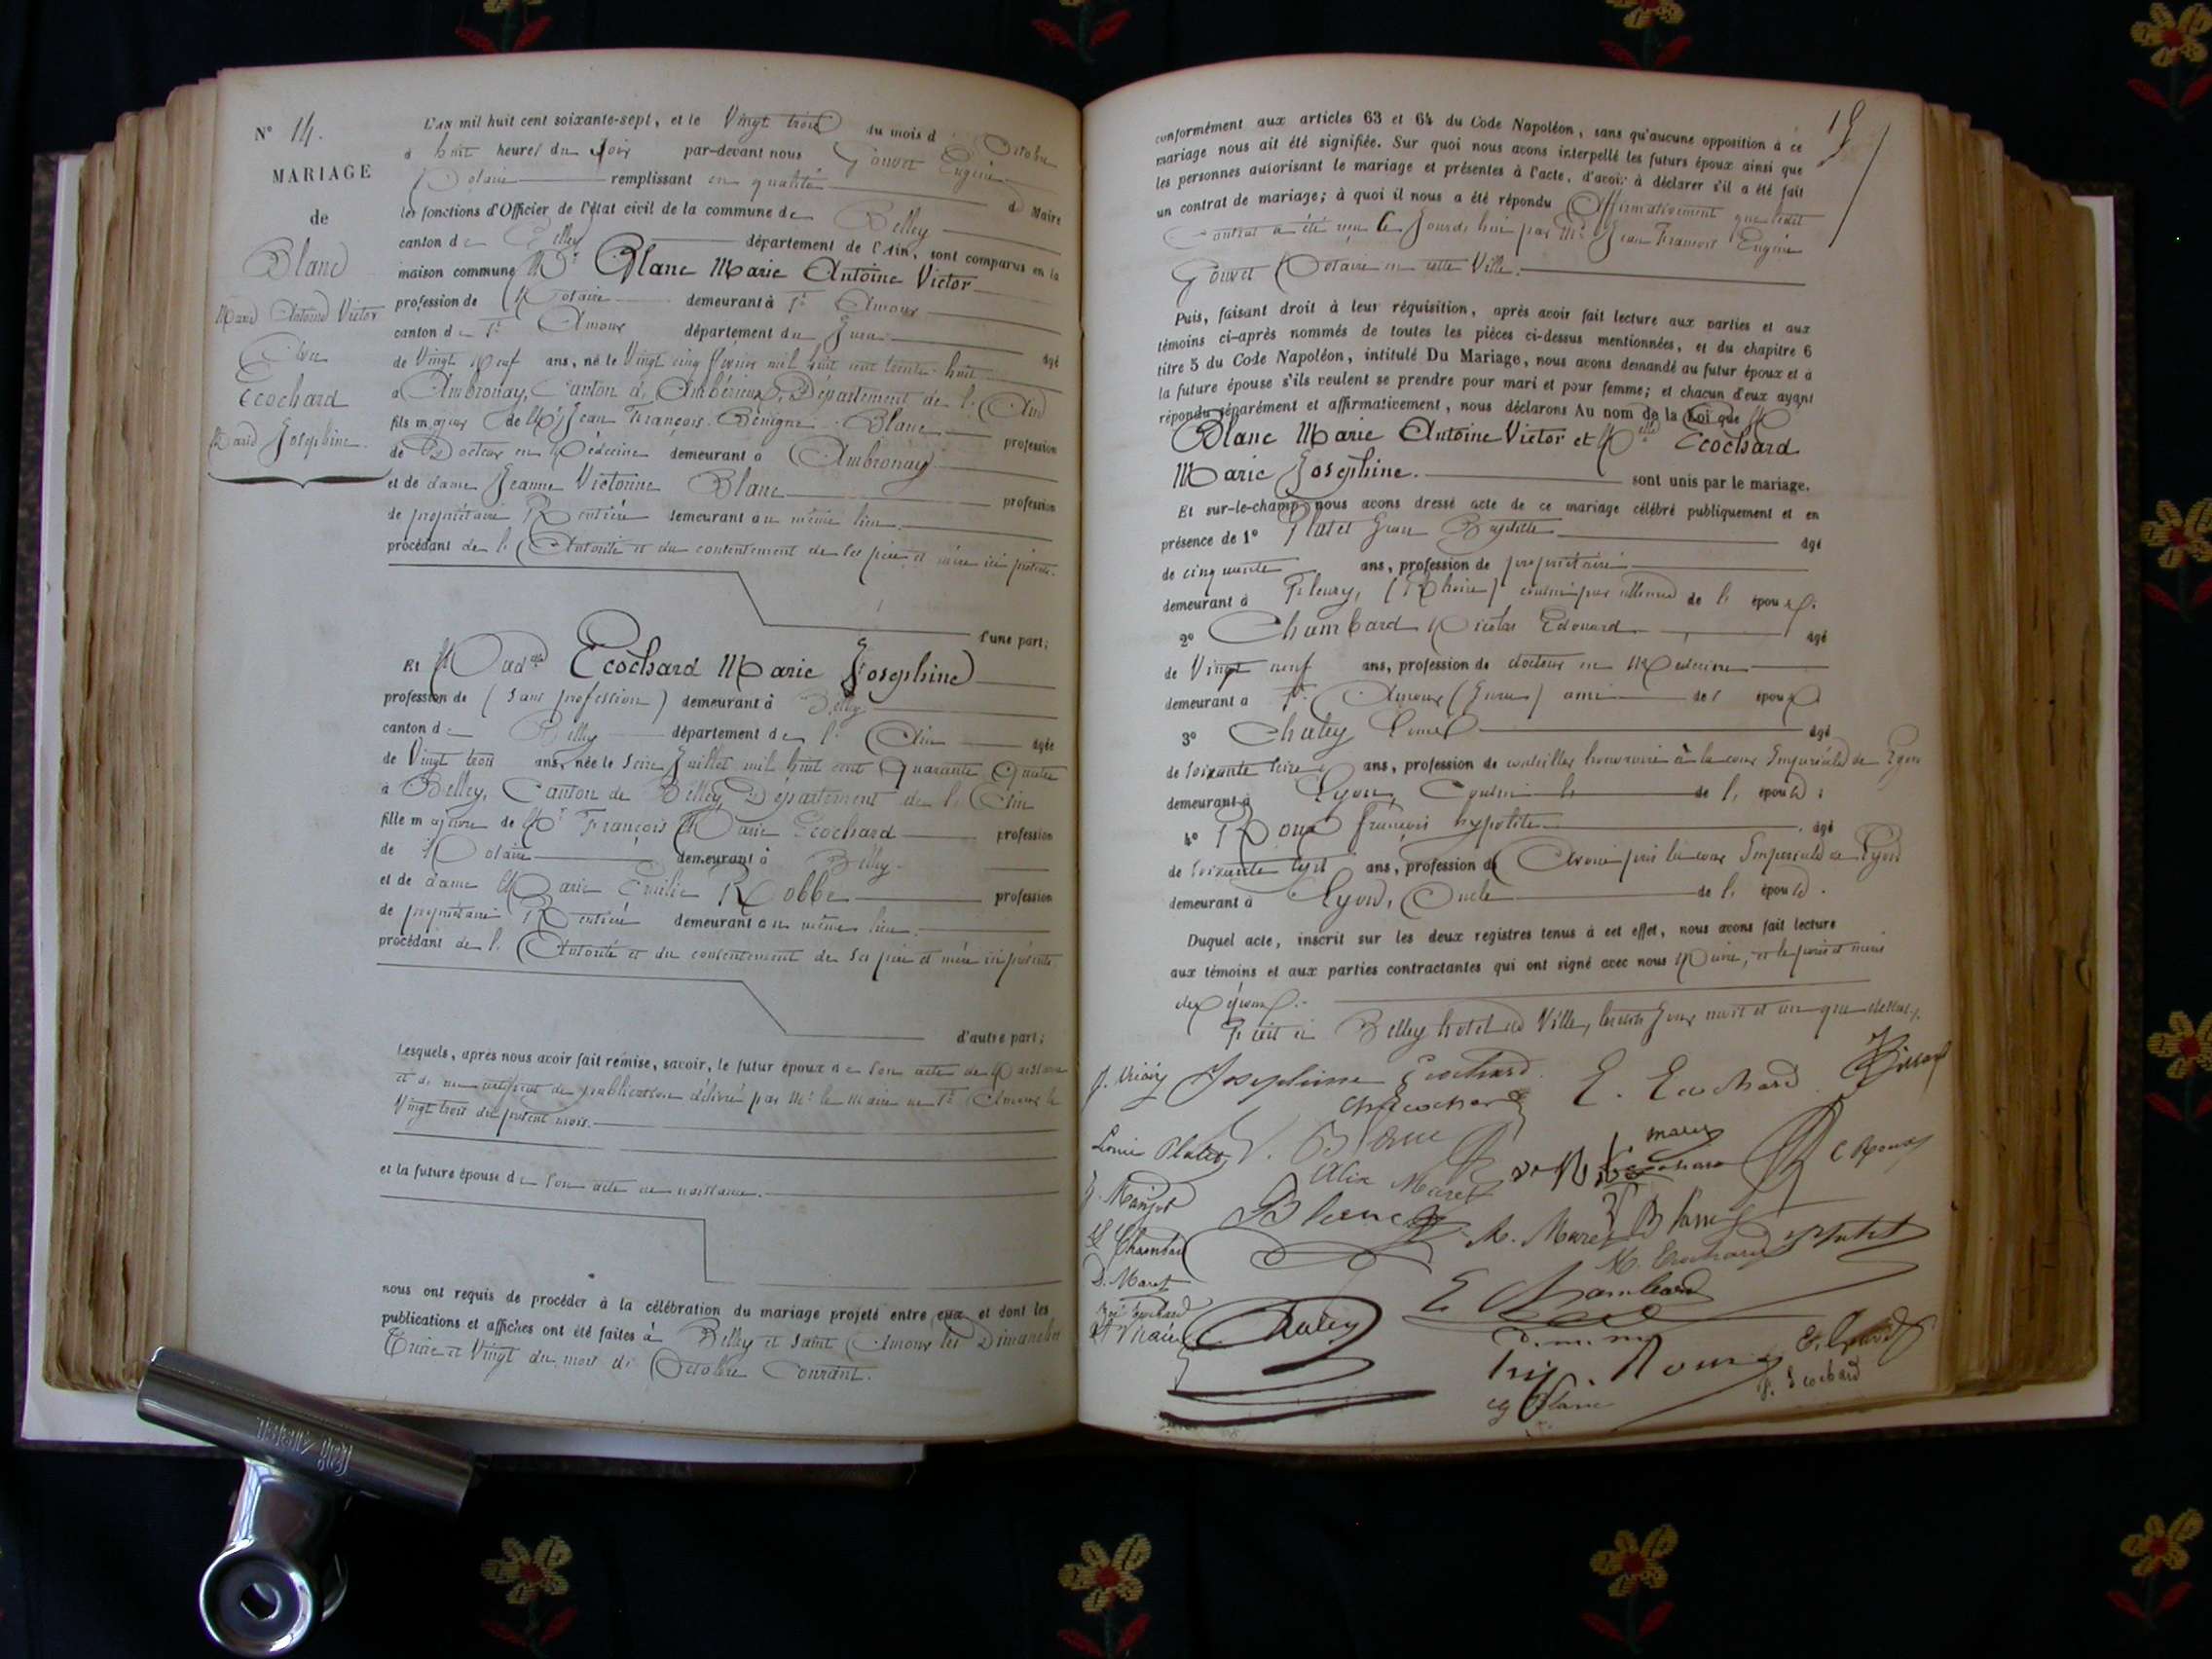 N° 14.
MARIAGE
de
Blanc
Marie Antoine Victor
Et
Ecochard
Marie Josephine.
L'AN mil huit cent soixante-sept, et le Vingt trois du mois d'Octobre
à huit heures du soir par-devant nous Gouvet Eugène
Notaire remplissant en qualité de Maire
les fonctions d'Officier de l'état civil de la commune de Belley
canton de Belley département de l'Ain, sont comparus en la
maison commune Mr Blanc Marie Antoine Victor
profession de Notaire demeurant à St Amour
canton de St Amour département du Jura âgé
de Vingt neuf ans, né le Vingt cinq février mil huit cent trente huit
à Ambronay, Canton d'Ambérieux, Département de l'Ain
fils majeur de Mr Jean François Bénigne Blanc profession
de Docteur en Médecine demeurant à Ambronay
et de dame Jeanne Victorine Blanc profession
de propriétaire Rentière demeurant au même lieu.
procédant de l'Autorité et du consentement de ses père et mère ici présents.
d'une part;
Et Madelle Ecochard Marie Josephine
profession de (sans profession) demeurant à Belley
canton de Belley département de l'Ain âgée
de Vingt trois ans, née le seize Juillet mil huit cent Quarante Quatre
à Belley, Canton de Belley Département de l'Ain
fille majeure de Mr François Marie Ecochard profession
de Notaire demeurant à Belley.
et de dame Marie Emilie Robbe profession
de propriétaire Rentière demeurant au même lieu.
procédant de l'Autorité et du consentement de ses père et mère ici présents
d'autre part;
Lesquels, après nous avoir fait remise, savoir, le futur époux de son acte de Naissance
et d'un certificat de publication délivré par Mr le Maire de St Amour le
Vingt trois du présent mois.
et la future épouse de son acte de naissance.
nous ont requis de procéder à la célébration du mariage projeté entre eux, et dont les
publications et affiches ont été faites à Belley et Saint Amour les Dimanches
Treize et Vingt du mois d'Octobre Courant.
conformément aux articles 63 et 64 du Code Napoléon, sans qu'aucune opposition à ce
mariage nous ait été signifiée. Sur quoi nous avons interpellé les futurs époux ainsi que
les personnes autorisant le mariage et présentes à l'acte, d'avoir à déclarer s'il a été fait
un contrat de mariage; à quoi il nous a été répondu Affirmativement que ledit
Contrat a été reçu Ce Jourd'hui par Me Jean François Eugène
Gouvet Notaire en cette Ville.
Puis, faisant droit à leur réquisition, après avoir fait lecture aux parties et aux
témoins ci-après nommés de toutes les pièces ci-dessus mentionnées, et du chapitre 6
titre 5 du Code Napoléon, intitulé Du Mariage, nous avons demandé au futur époux et à
la future épouse s'ils veulent se prendre pour mari et pour femme; et chacun d'eux ayant
répondu séparément et affirmativement, nous déclarons Au nom de la Loi que Mr
Blanc Marie Antoine Victor et Melle Ecochard
Marie Josephine. sont unis par le mariage.
Et sur-le-champ nous avons dressé acte de ce mariage célébré publiquement et en
présence de 1° Platet Jean Baptiste âgé
de cinquante ans, profession de propriétaire
demeurant à Fleury, (Rhône) cousin par alliance de l'époux.
2° Chambard Nicolas Edouard âgé
de Vingt neuf ans, profession de docteur en Médecine
demeurant à St Amour (Jura) ami de l'époux
3° Chaley âgé
de soixante seize ans, profession de conseiller honoraire à la cour Impériale de Lyon
demeurant à Lyon, Cousin de l'épouse;
4° Roux françois hypolite âgé
de soixante sept ans, profession d'Avoué près la cour Impériale de Lyon
demeurant à Lyon, Oncle de l'épouse.
Duquel acte, inscrit sur les deux registres tenus à cet effet, nous avons fait lecture
aux témoins et aux parties contractantes qui ont signé avec nous Maire, et les pères et mères
des époux.
Fait à Belley hotel de Ville, lesdits Jour mois et an que dessus.
Josephine Ecochard E. Ecochard
Louise Platet V. Blanc Marie C Roux
Alix Maret
Blanc M. Maret Blanc
Chambard M. Ecochard Platet
D. Maret E Chambard
Chaley
hip. Roux
Blanc F. Ecochard